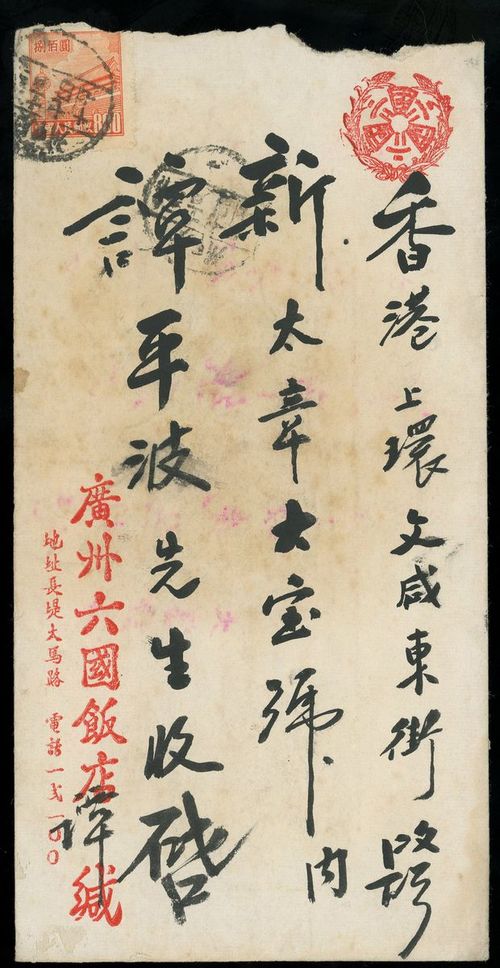 香港上環文咸東街
新太章大宝號内
譚平波先生收啓
廣州六國飯店譚緘
地址長堤大馬路 電話一弍一〇〇
捌佰圓
800